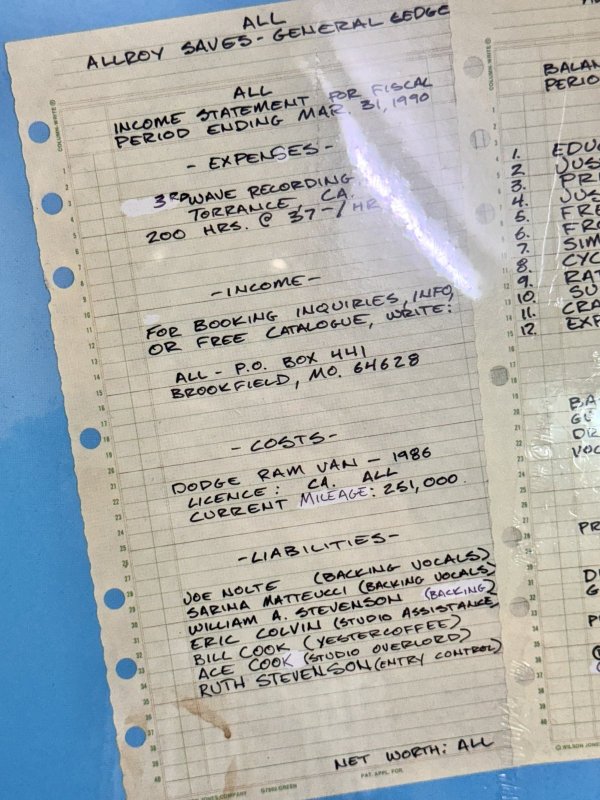 ALL
ALLROY SAVES - GENERAL GEDGE
ALL
INCOME STATEMENT FOR FISCAL
PERIOD ENDING MAR. 31, 1990
- EXPENSES -
3RD WAVE RECORDING
TORRANCE, CA.
200 HRS. @ 37-/HR
- INCOME -
FOR BOOKING INQUIRIES, INFO,
OR FREE CATALOGUE, WRITE:
ALL - P.O. BOX 441
BROOKFIELD, MO. 64628
- COSTS -
DODGE RAM VAN - 1986
LICENCE: CA. ALL
CURRENT MILEAGE: 251,000
- LIABILITIES -
JOE NOLTE (BACKING VOCALS)
SARINA MATTEUCCI (BACKING VOCALS)
WILLIAM A. STEVENSON (BACKING)
ERIC COLVIN (STUDIO ASSISTANCE)
BILL COOK (YESTERCOFFEE)
ACE COOK (STUDIO OVERLORD)
RUTH STEVENSON (ENTRY CONTROL)
NET WORTH: ALL
JONES COMPANY G7503 GREEN PAT. APPL. FOR
COLUMN-WRITE ®
COLUMN-WRITE ®
BALAN
PERIO
1. EDU
2 JUS
3. PRI
4. JUS
5. FRE
6. FRO
7. SIM
8. CYC
9. RAT
10. SU
11. CRA
12. EXP
BA
GU
DR
VOC
PR
D
G
© WILSON JONES